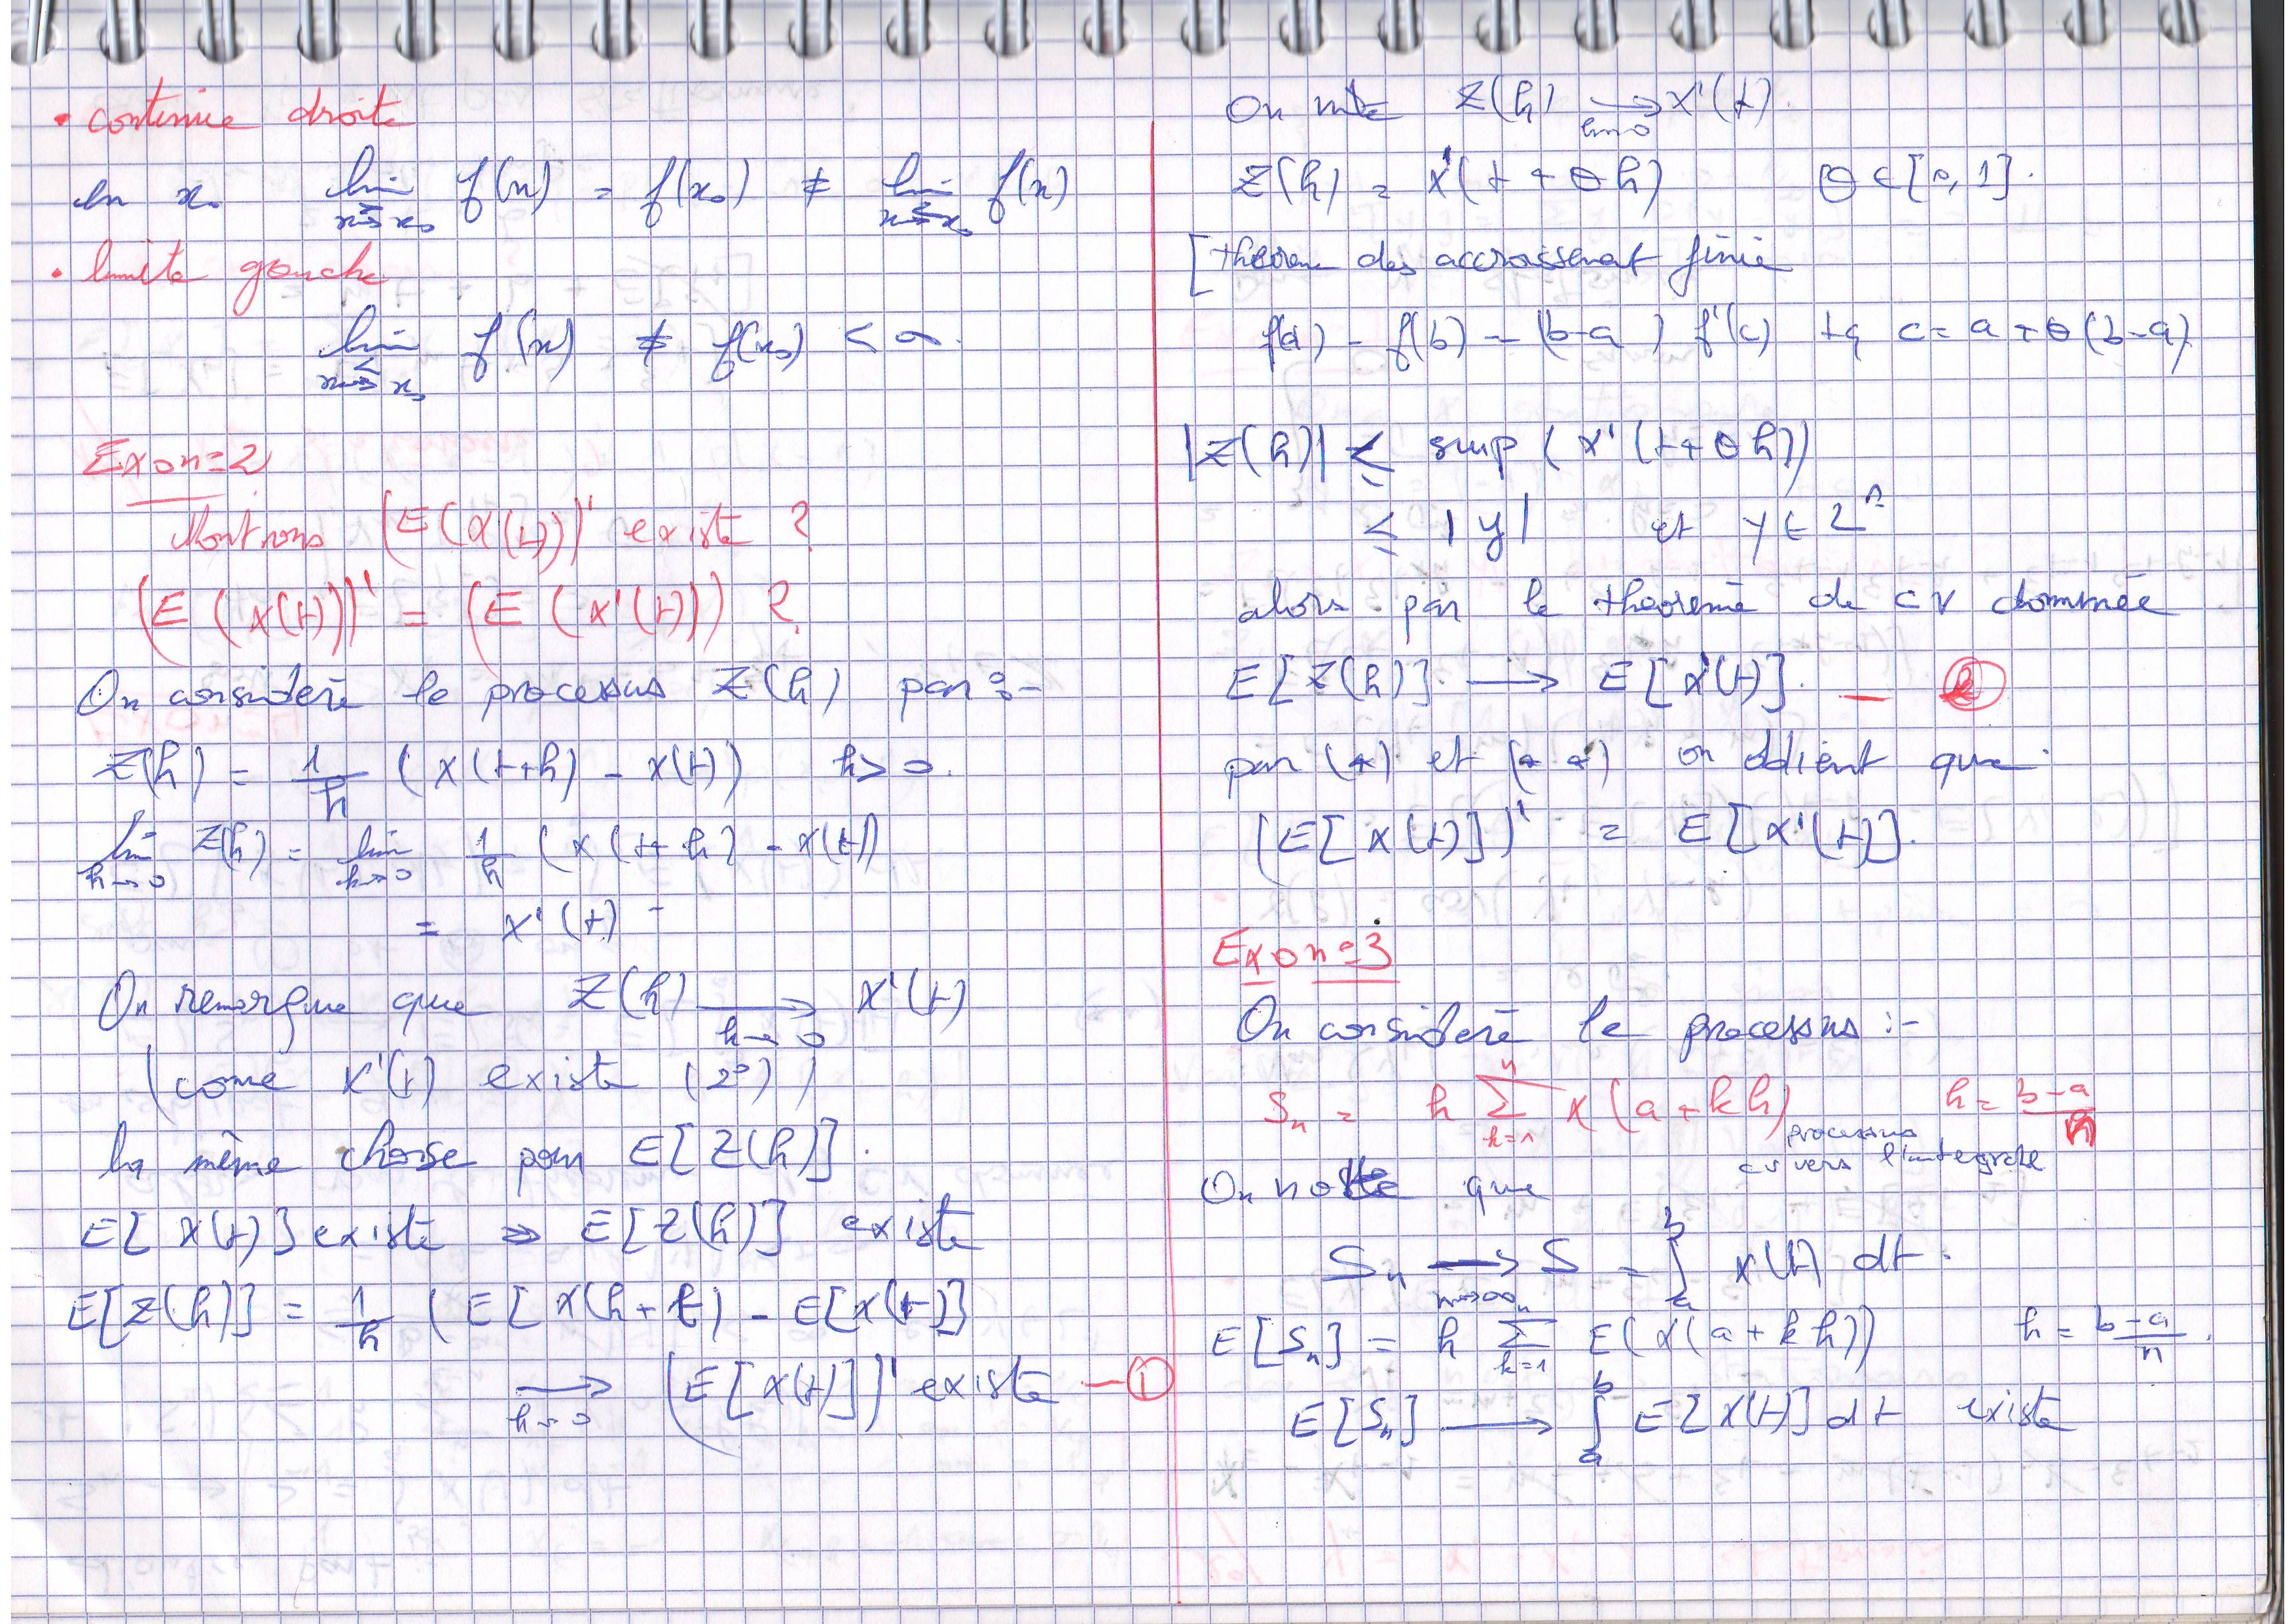 • continue droite
en x₀ lim x→>x₀ f(x) = f(x₀) ≠ lim x→<x₀ f(x)
• limite gauche
lim x→<x₀ f(x) ≠ f(x₀) < ∞.
Exo n=2
Montrons (E(X(t))' existe ?
(E (X(t)))' = (E (X'(t))) ?
On considère le processus Z(h) par :-
Z(h) = 1/h (X(t+h) - X(t)) h > 0.
lim h→0 Z(h) = lim h→0 1/h (X(t+h) - X(t))
= X'(t)
On remarque que Z(h) → h→0 X'(t)
(come X'(t) existe (2°))
la même chose pour E[Z(h)].
E[X(t)] existe ⇒ E[Z(h)] existe
E[Z(h)] = 1/h (E[X(h+t) - E[X(t)]
→ h→0 (E[X(t)])' existe — ①
On note Z(h) → h→0 X'(t).
Z(h) = X'(t + θh) θ ∈ [0, 1].
[theorem des accroissenat finie
f(a) - f(b) = (b-a) f'(c) tq c = a + θ(b-a)
|Z(h)| ≤ sup (X'(t+θh))
≤ |y| et y ∈ L¹
alors par le theoreme de cv dominée
E[Z(h)] → E[X'(t)]. — ②
par (*) et (**) on obtient que
(E[X(t)])' = E[X'(t)].
Exo n=3
On considère le processus :-
Sₙ = h Σ k=1 n X(a+kh) h = b-a/n
processus
cv vers l'integrale
On note que
Sₙ → n→∞ S = ∫ₐᵇ X(t) dt.
E[Sₙ] = h Σ k=1 n E(X(a+kh)) h = b-a/n.
E[Sₙ] → ∫ₐᵇ E[X(t)] dt existe